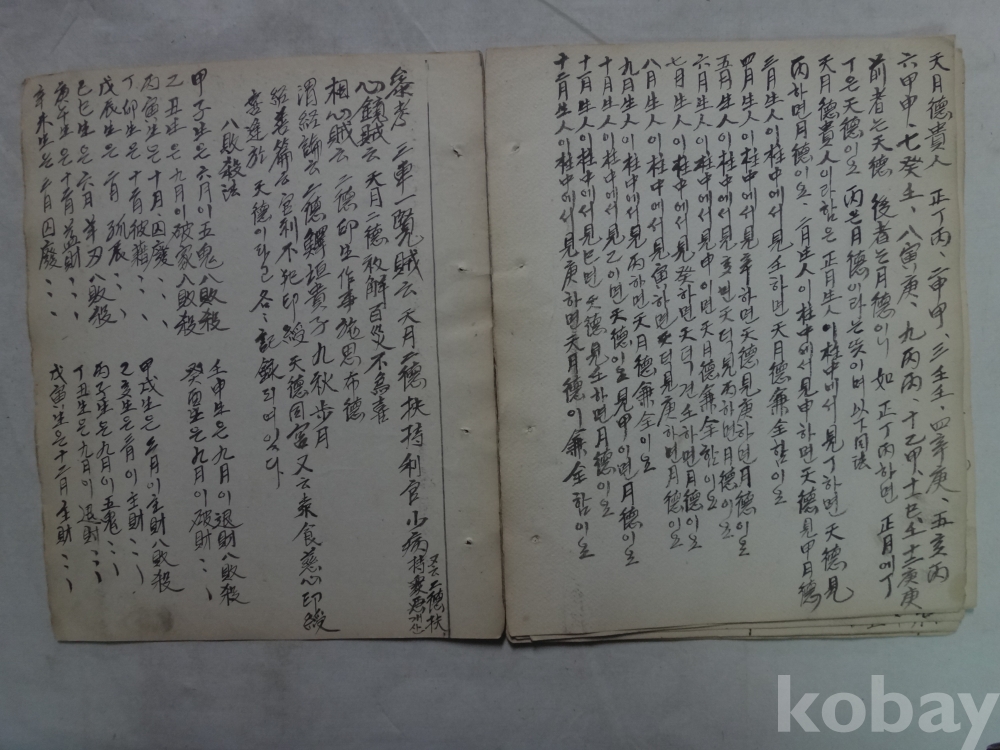 天月德貴人 正丁丙、二申甲、三壬壬、四辛庚、五亥丙
六甲甲、七癸壬、八寅庚、九丙丙、十乙甲、十一巳壬、十二庚庚
前者는天德 後者는月德이니 如正丁丙하면 正月에丁
丁은天德이오 丙은月德이라는뜻이며以下同法
天月德貴人이라함은正月生人이柱中에서見丁하면天德見
丙하면月德이오、二月生人이柱中에서見申하면天德見甲月德
三月生人이柱中에서見壬하면天月德兼全함이오
四月生人이柱中에서見辛하면天德見庚하면月德이오
五月生人이柱中에서見亥면天德見丙하면月德이오
六月生人이柱中에서見甲이면天月德兼全함이오
七月生人이柱中에서見癸하면天德見壬하면月德이오
八月生人이柱中에서見寅하면天德見庚하면月德이오
九月生人이柱中에서見丙하면天月德兼全이오
十月生人이柱中에서見乙이면天德이오見甲이면月德이오
十一月生人이柱中에서見巳면天德見壬하면月德이오
十二月生人이柱中에서見庚하면天月德이兼全함이오
又云二德扶
參考 三車一覽賊云天月二德扶持利官小病持
心鏡賊云天月二德救解百災不爲喜
相心賊云二德印生作事施恩布德
渭經論云二德 貴子九秋步月
篇云官刑不犯印綬天德同宮又云素食慈心印綬
逢於天德이라고各各記錄되여있다
八敗殺法
甲子生은六月이五鬼八敗殺
乙丑生은九月이破家八敗殺
丙寅生은十月、囚廢〃〃〃
丁卯生은十二月被 〃〃〃
戊辰生은二月 孤辰〃〃〃
己巳生은六月羊刃八敗殺
庚午生은十二月 財〃〃〃
辛未生은二月囚廢〃〃〃
壬申生은九月이退財八敗殺
癸酉生은九月이破財〃〃〃
甲戌生은三月이主財八敗殺
乙亥生은三月이主財〃〃〃
丙子生은九月이五鬼〃〃〃
丁丑生은九月이退財〃〃〃
戊寅生은十二月主財〃〃〃
kobay